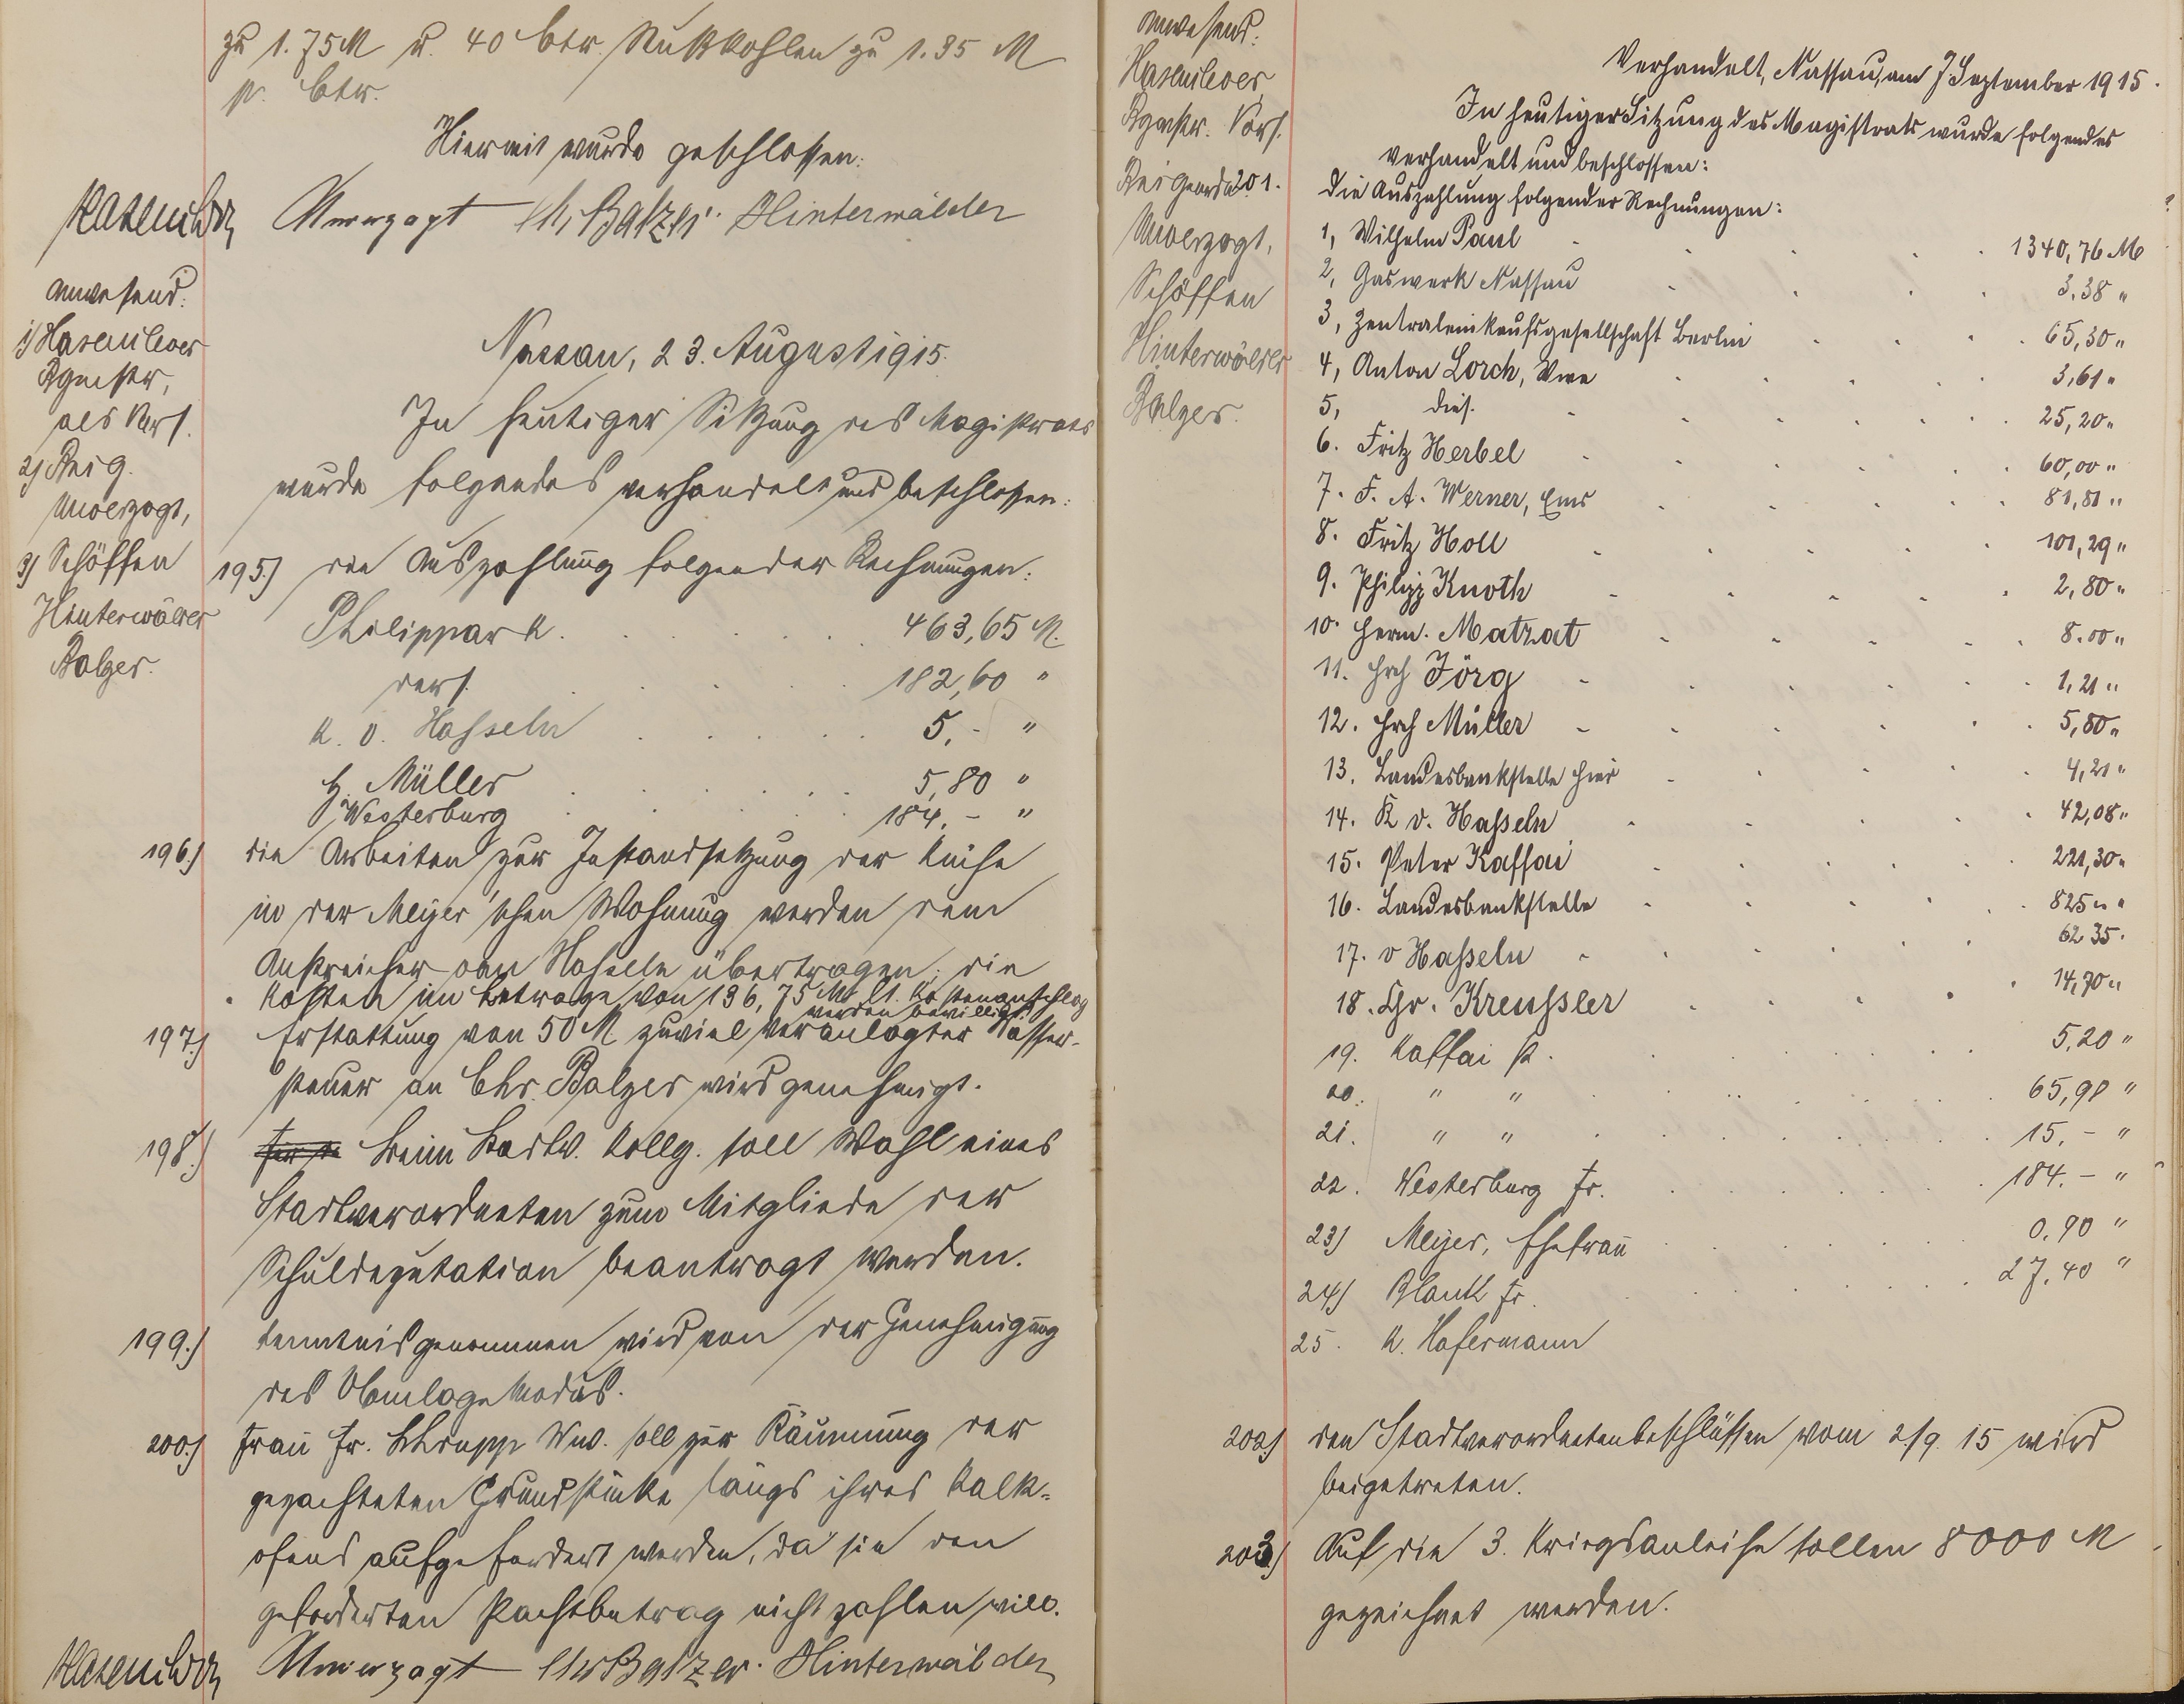 zu 1.75 M u. 40 Ctr. Nußkohlen zu 1.35 M
p. Ctr.
Hiermit wurde geschlossen:
Hasenclever Unverzagt Chr. Balzer. Hinterwälder
Anwesend:
1) Hasenclever
Bgmstr,
als Vors.
2) Beig.
Unverzagt,
3) Schöffen
Hinterwälder
Balzer.
Nassau, 23. August 1915.
In heutiger Sitzung des Magistrats
wurde folgendes verhandelt und beschlossen:
195.) die Auszahlung folgender Rechnungen:
Philippar K. 463,65 M.
ders. 182,60 "
K. v. Hasseln 5,- "
H. Müller 5,80 "
Westerburg 184.- "
196.) die Arbeiten zur Instandsetzung der Küche
in der Meijer'schen Wohnung werden dem
Anstreicher von Hasseln übertragen; die
Kosten im Betrage von 136,75 M lt. Kostenanschlag
werden bewilligt.
197.) Erstattung von 50 M zuviel veranlagter Wasser-
steuer an Chr. Balzer wird genehmigt.
198.) Beim Stadtv. Kollg. soll Wahl eines
Stadtverordneten zum Mitgliede der
Schuldeputation beantragt werden.
199.) Kenntnis genommen wird von der Genehmigung
des Umlagemodus.
200.) Frau Fr. Schrupp Ww. soll zur Räumung der
gepachteten Grundstücke längs ihres Kalk-
ofens aufgefordert werden, da sie den
geforderten Pachtbetrag nicht zahlen will.
Hasenclever Unverzagt Chr. Balzer. Hinterwälder
Anwesend:
Hasenclever
Bgmstr. Vors.
Beigeordn.
Unverzagt,
Schöffen
Hinterwälder
Balzer.
Verhandelt, Nassau, am 7 September 1915.
In heutiger Sitzung des Magistrats wurde folgendes
verhandelt und beschlossen:
201. Die Auszahlung folgender Rechnungen:
1, Wilhelm Paul 1340,76 M
2, Gaswerk Nassau 3,38 "
3, Zentraleinkaufsgesellschaft Berlin 65,30 "
4, Anton Lorch, Wwe 3,61 "
5, dies. 25,20 "
6. Fritz Herbel 60,00 "
7. F. A. Werner, Ems 81,81 "
8. Fritz Holl 101,29 "
9. Philipp Knoth 2,80 "
10. Herm. Matzat 8.00 "
11. Hrch Jörg 1,21 "
12. Hrch Müller 5,80 "
13. Landesbankstelle hier 4,21 "
14. K v. Hasseln 42,08 "
15. Peter Kaffai 221,30 "
16. Landesbankstelle 825 " "
17. v Hasseln 62 35.
18. Chr. Kreussler 14,70 "
19. Kaffai P. 5,20 "
20. " " 65,90 "
21. " " 15,- "
22. Westerburg Fr. 184.- "
23) Meijer, Ehefrau 0,90 "
24) Blank Fr. 27,40 "
25. K. Hafermann
202) den Stadtverordnetenbeschlüssen vom 2/9. 15 wird
beigetreten.
203) Auf die 3. Kriegsanleihe sollen 8000 M
gezeichnet werden.